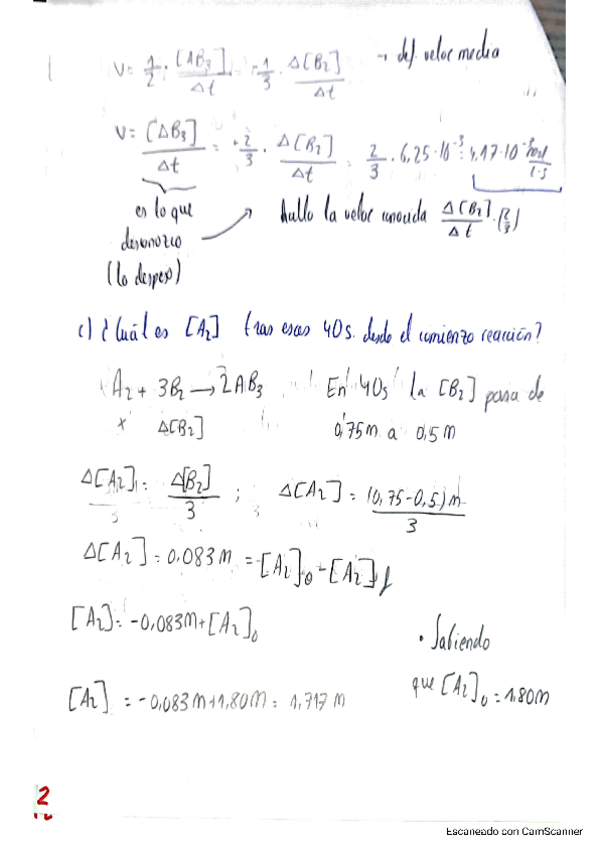 V = 1/2 · [AB3]/Δt = -1/3 · Δ[B2]/Δt → def veloc media
V = [ΔB3]/Δt = -2/3 · Δ[B2]/Δt = 2/3 · 6,25·10^-3 = 4,17·10^-3 mol/l·s
es lo que
desconozco
(lo despejo)
hallo la veloc conocida Δ[B2]/Δt · (2/3)
c) ¿Cuál es [A2] tras esos 40s. desde el comienzo reacción?
A2 + 3B2 → 2AB3 En 40s la [B2] pasa de
x Δ[B2] 0,75M a 0,5M
Δ[A2] = Δ[B2]/3 ; Δ[A2] = (0,75-0,5)M/3
Δ[A2] = 0,083M = [A2]0 - [A2]f
[A2] = -0,083M + [A2]0
• Sabiendo
que [A2]0 = 1,80M
[A2] = -0,083M + 1,80M = 1,717M
2
Escaneado con CamScanner